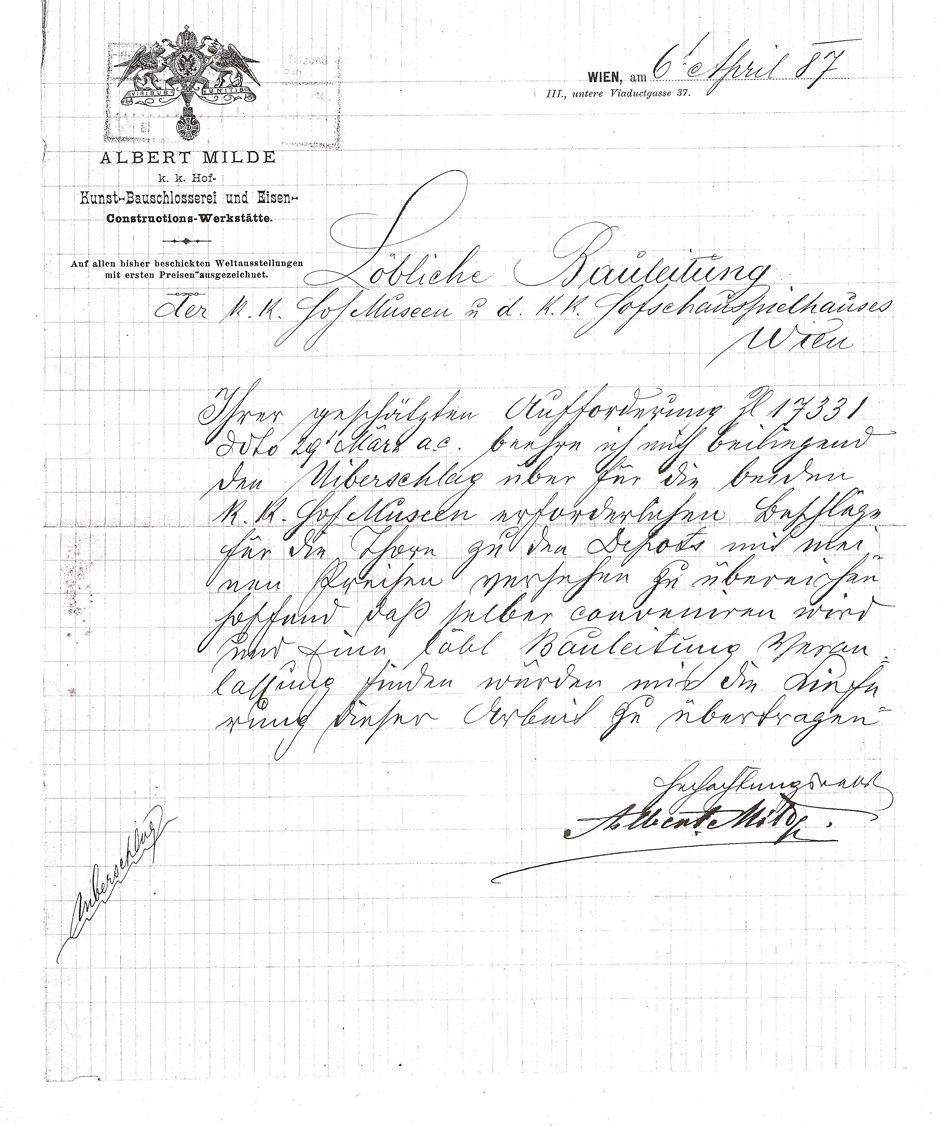 WIEN, am 6t April 87
III., untere Viaductgasse 37.
VIRIBUS UNITIS
ALBERT MILDE
k. k. Hof-
Kunst-Bauschlosserei und Eisen-
Constructions-Werkstätte.
Auf allen bisher beschickten Weltausstellungen
mit ersten Preisen ausgezeichnet.
Löbliche Bauleitung
der K. K. Hof Museen u d. K. K. Hofschauspielhauses
Wien
Ihrer geschätzten Aufforderung Zl 17331
ddto 29 März a.c. beehre ich mich beiliegend
den Uiberschlag über für die beiden
K. K. Hof Museen erforderlichen Beschläge
für die Thore zu den Depots mit mei=
nen Preisen versehen zu übereichen
hoffend daß selber conveniren wird
und Eine löbl Bauleitung Veran=
lassung finden würden mir die Liefe
rung dieser Arbeit zu übertragen=
Hochachtungsvollst
Albert Milde.
Uiberschlag